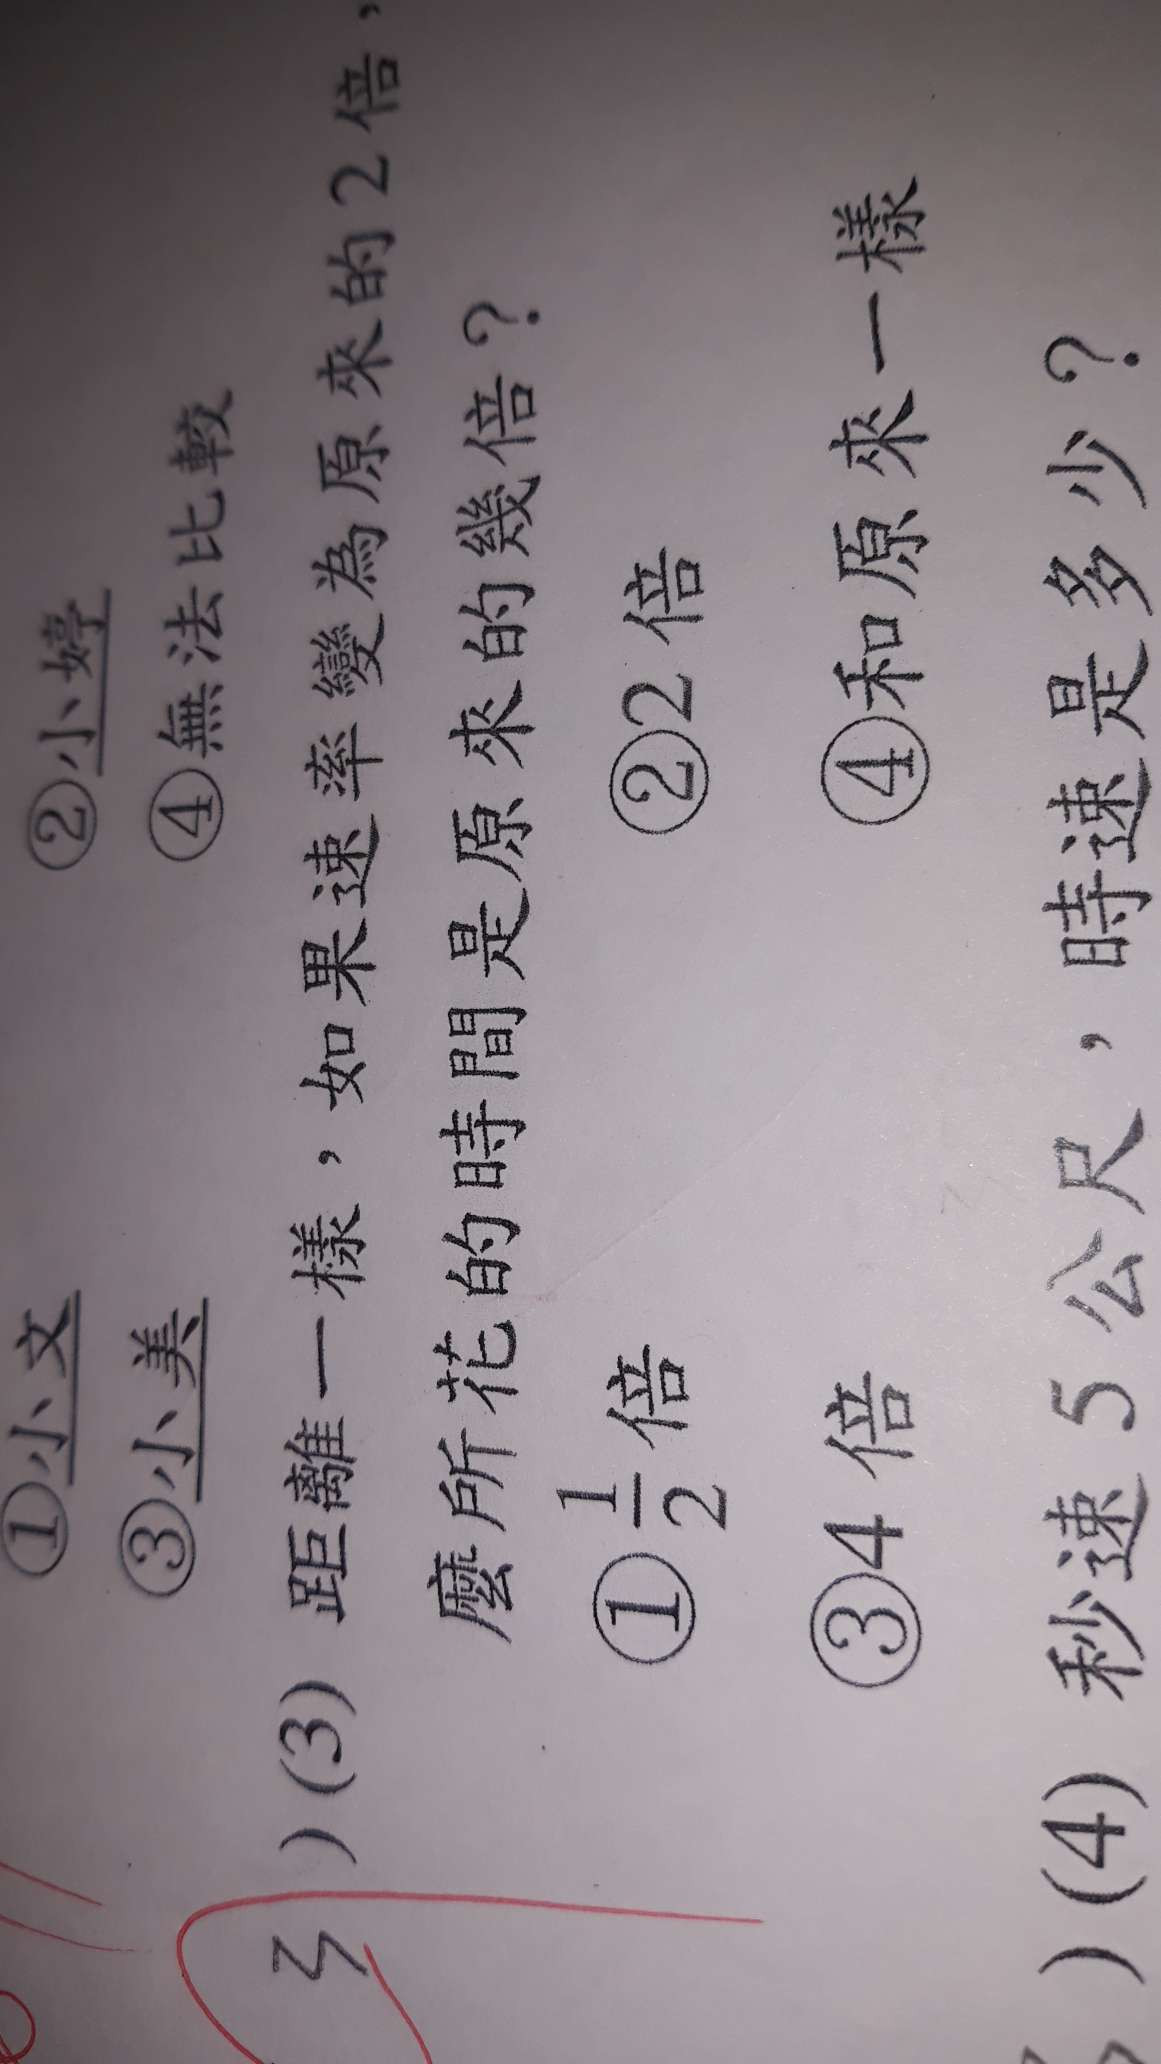 ①小文 ②小婷
③小美 ④無法比較
3 ) (3) 距離一樣，如果速率變為原來的2倍，
麼所花的時間是原來的幾倍？
①1/2倍 ②2倍
③4倍 ④和原來一樣
) (4) 秒速5公尺，時速是多少？